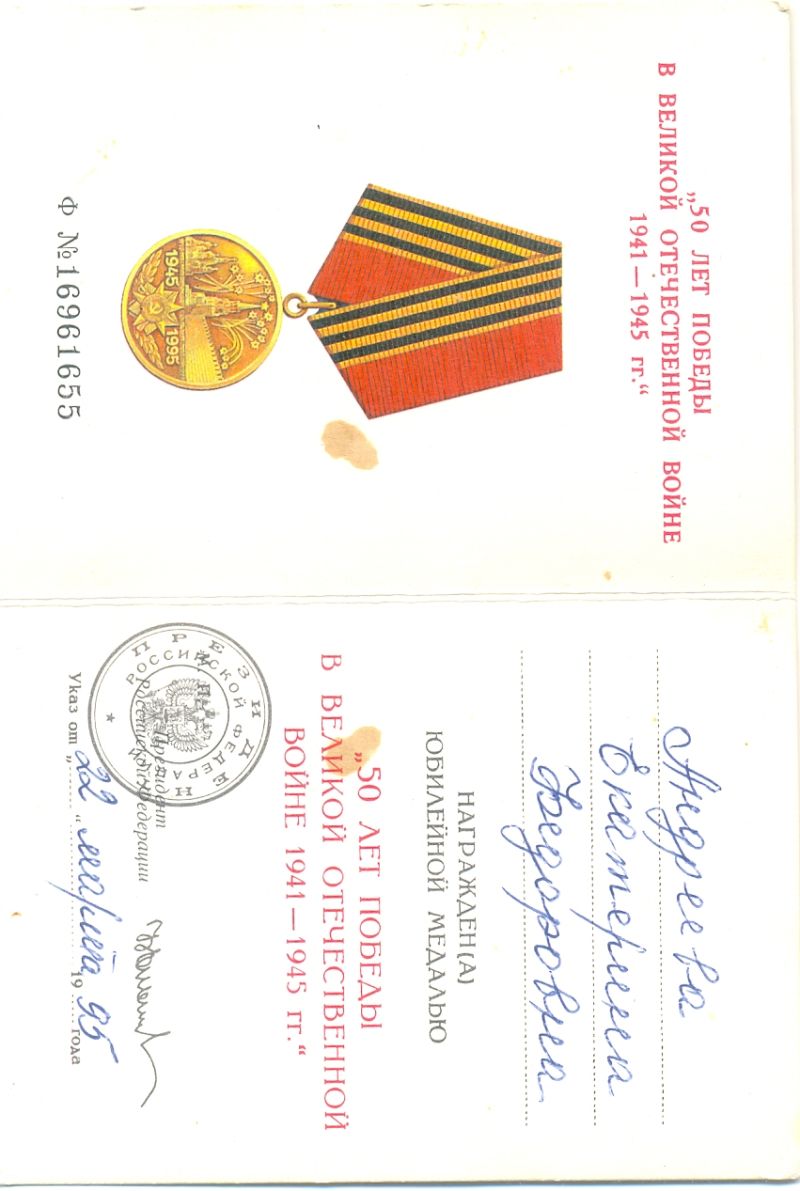 „50 ЛЕТ ПОБЕДЫ
В ВЕЛИКОЙ ОТЕЧЕСТВЕННОЙ ВОЙНЕ
1941—1945 гг.“
1945 1995
Ф №16961655
Андреева
Екатерина
Федоровна
НАГРАЖДЕН(А)
ЮБИЛЕЙНОЙ МЕДАЛЬЮ
„50 ЛЕТ ПОБЕДЫ
В ВЕЛИКОЙ ОТЕЧЕСТВЕННОЙ
ВОЙНЕ 1941—1945 гг.“
Президент
Российской Федерации
ПРЕЗИДЕН
РОССИЙСКОЙ ФЕДЕРА
Указ от „22“ марта 1995 года